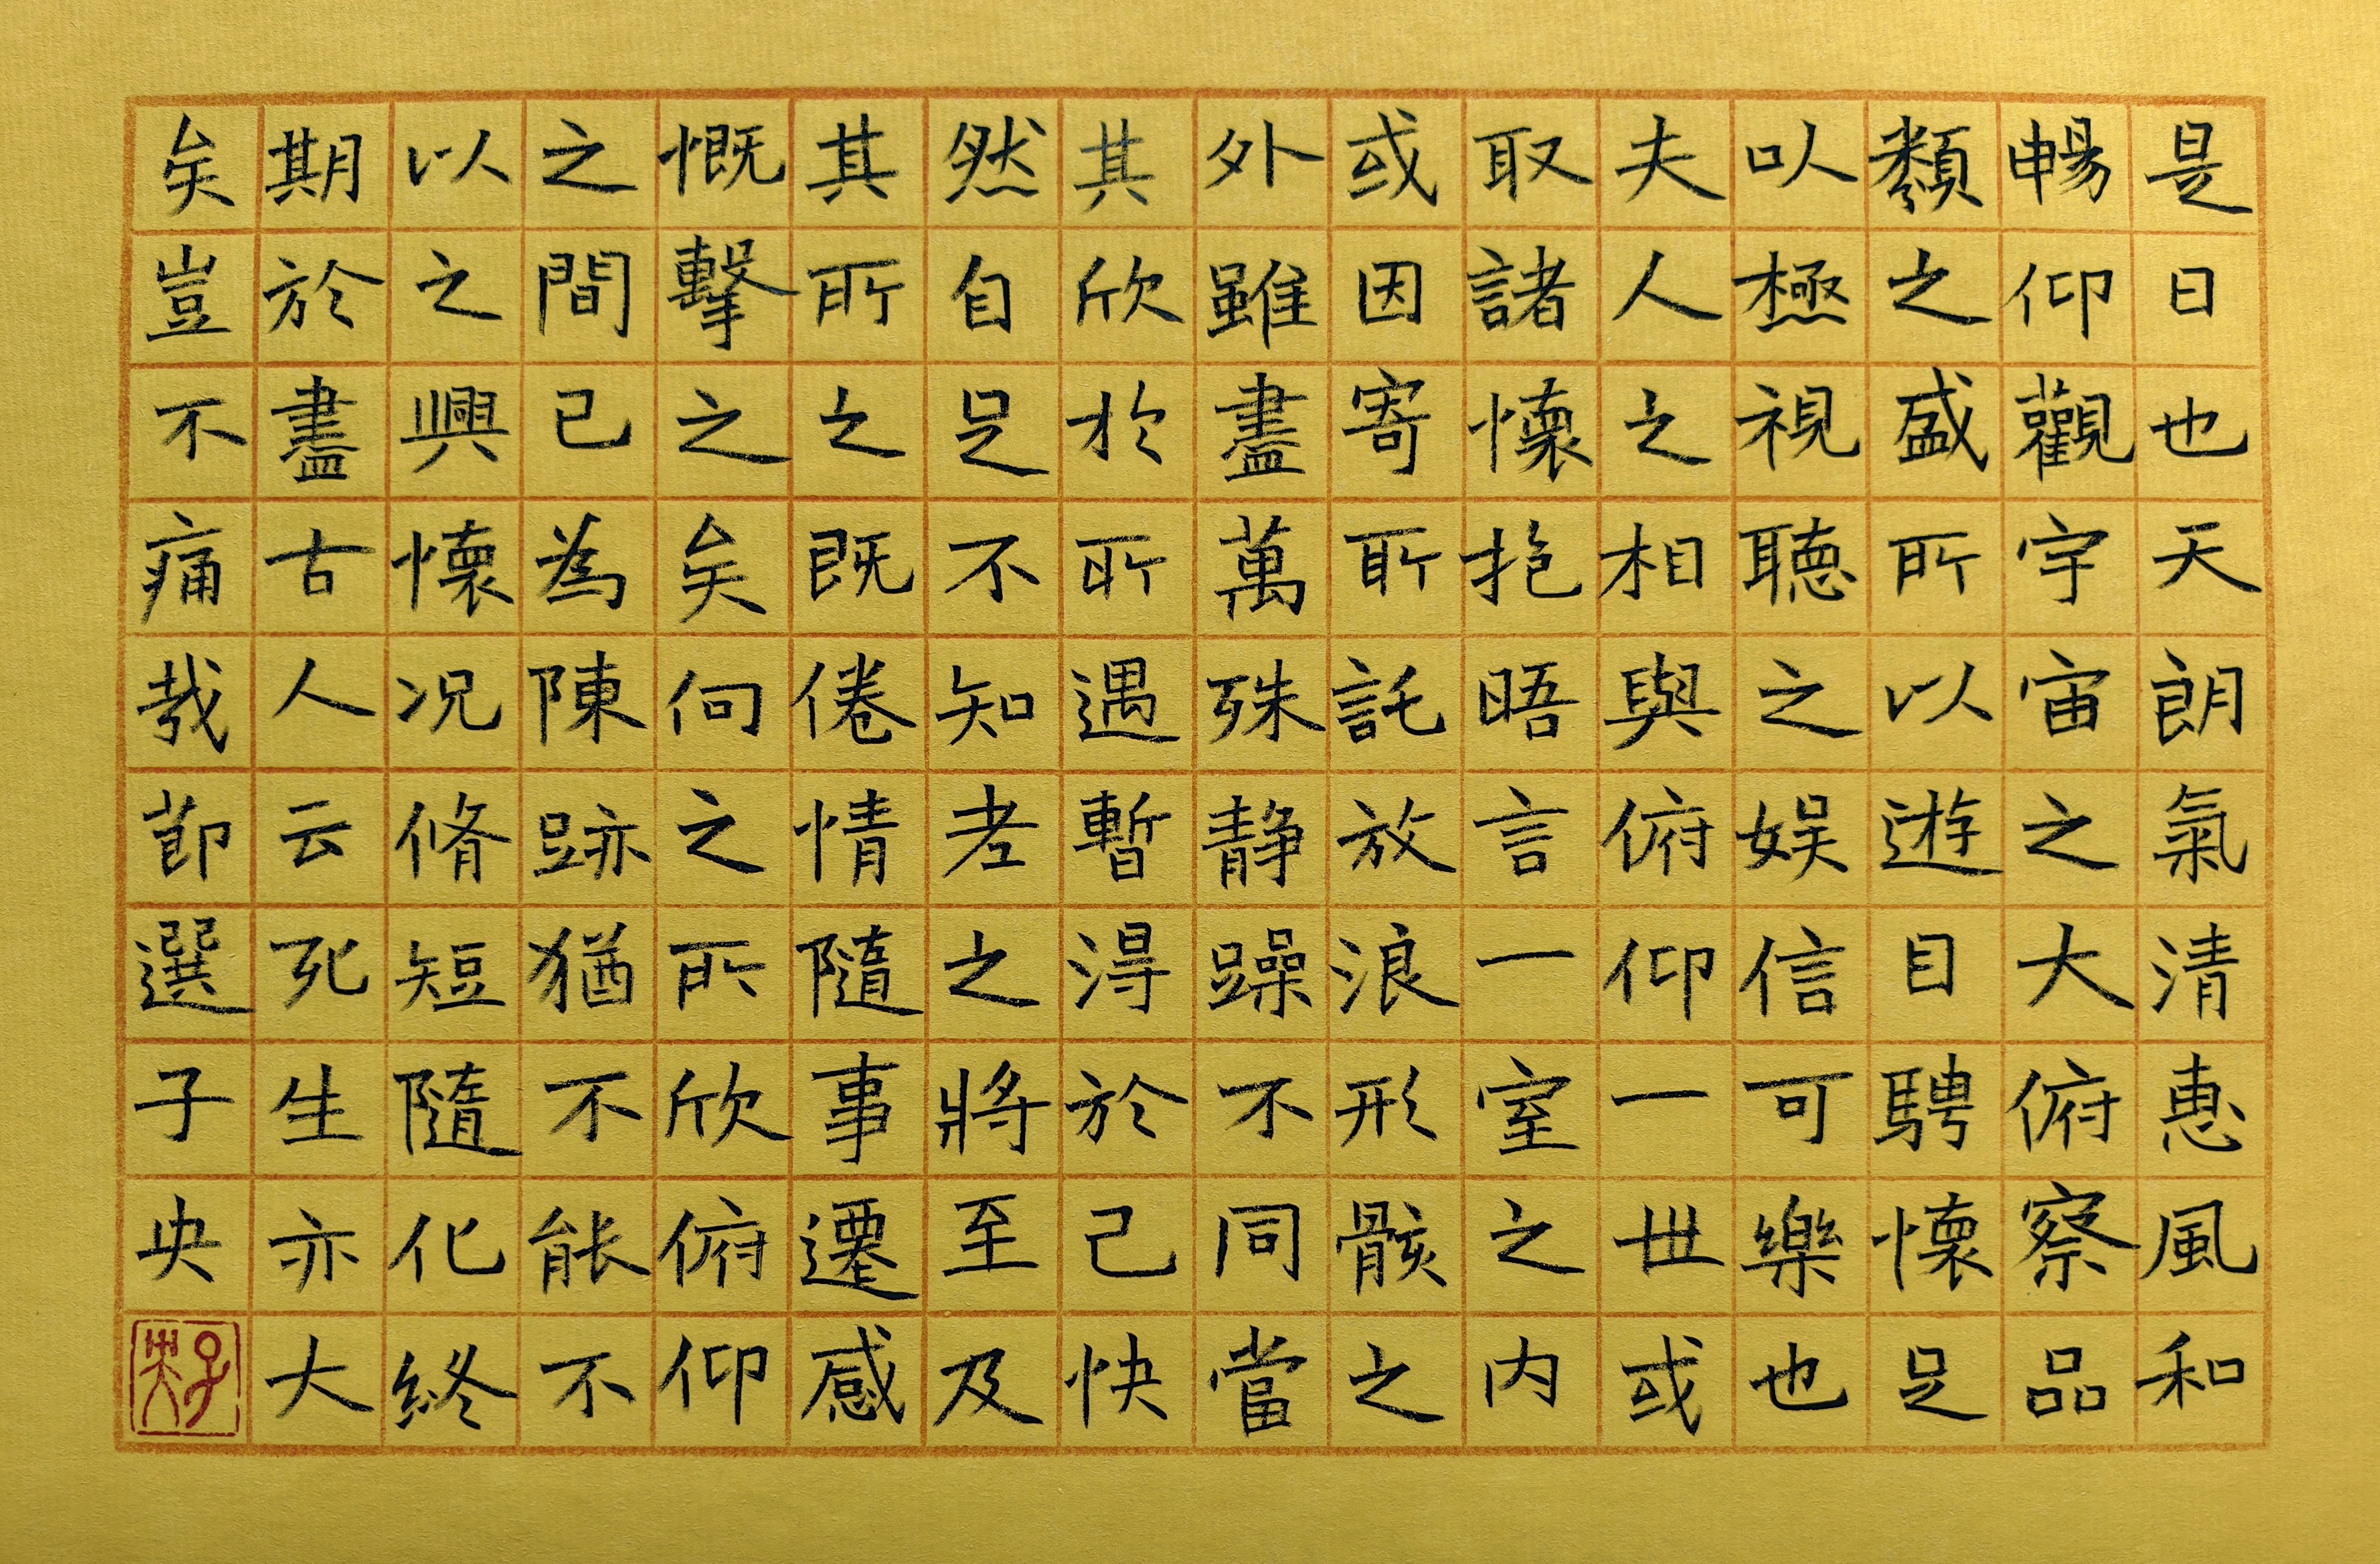 是日也天朗氣清惠風和
暢仰觀宇宙之大俯察品
類之盛所以遊目騁懷足
以極視聽之娛信可樂也
夫人之相與俯仰一世或
取諸懷抱晤言一室之内
或因寄所託放浪形骸之
外雖盡萬殊静躁不同當
其欣於所遇暫得於己快
然自足不知老之將至及
其所之既倦情隨事遷感
慨擊之矣向之所欣俯仰
之間已為陳跡猶不能不
以之興懷况脩短隨化終
期於盡古人云死生亦大
矣豈不痛哉節選子央
子央